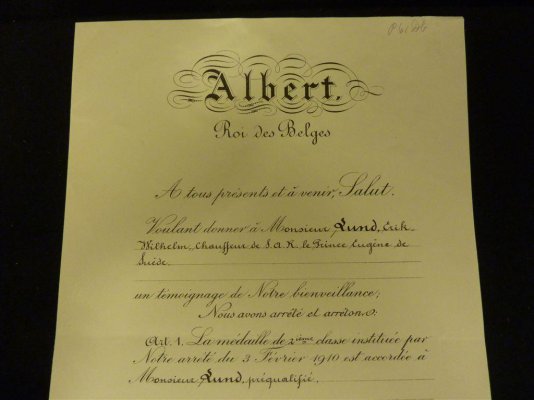 Albert,
Roi des Belges
A tous présents et à venir, Salut.
Voulant donner à Monsieur Lund, Erik
Wilhelm, Chauffeur de S.A.R. le Prince Eugène de
Suède.
un témoignage de Notre bienveillance,
Nous avons arrêté et arrêtons:
Art. 1. La médaille de 2ième classe instituée par
Notre arrêté du 3 Février 1910 est accordée à
Monsieur Lund, préqualifié.